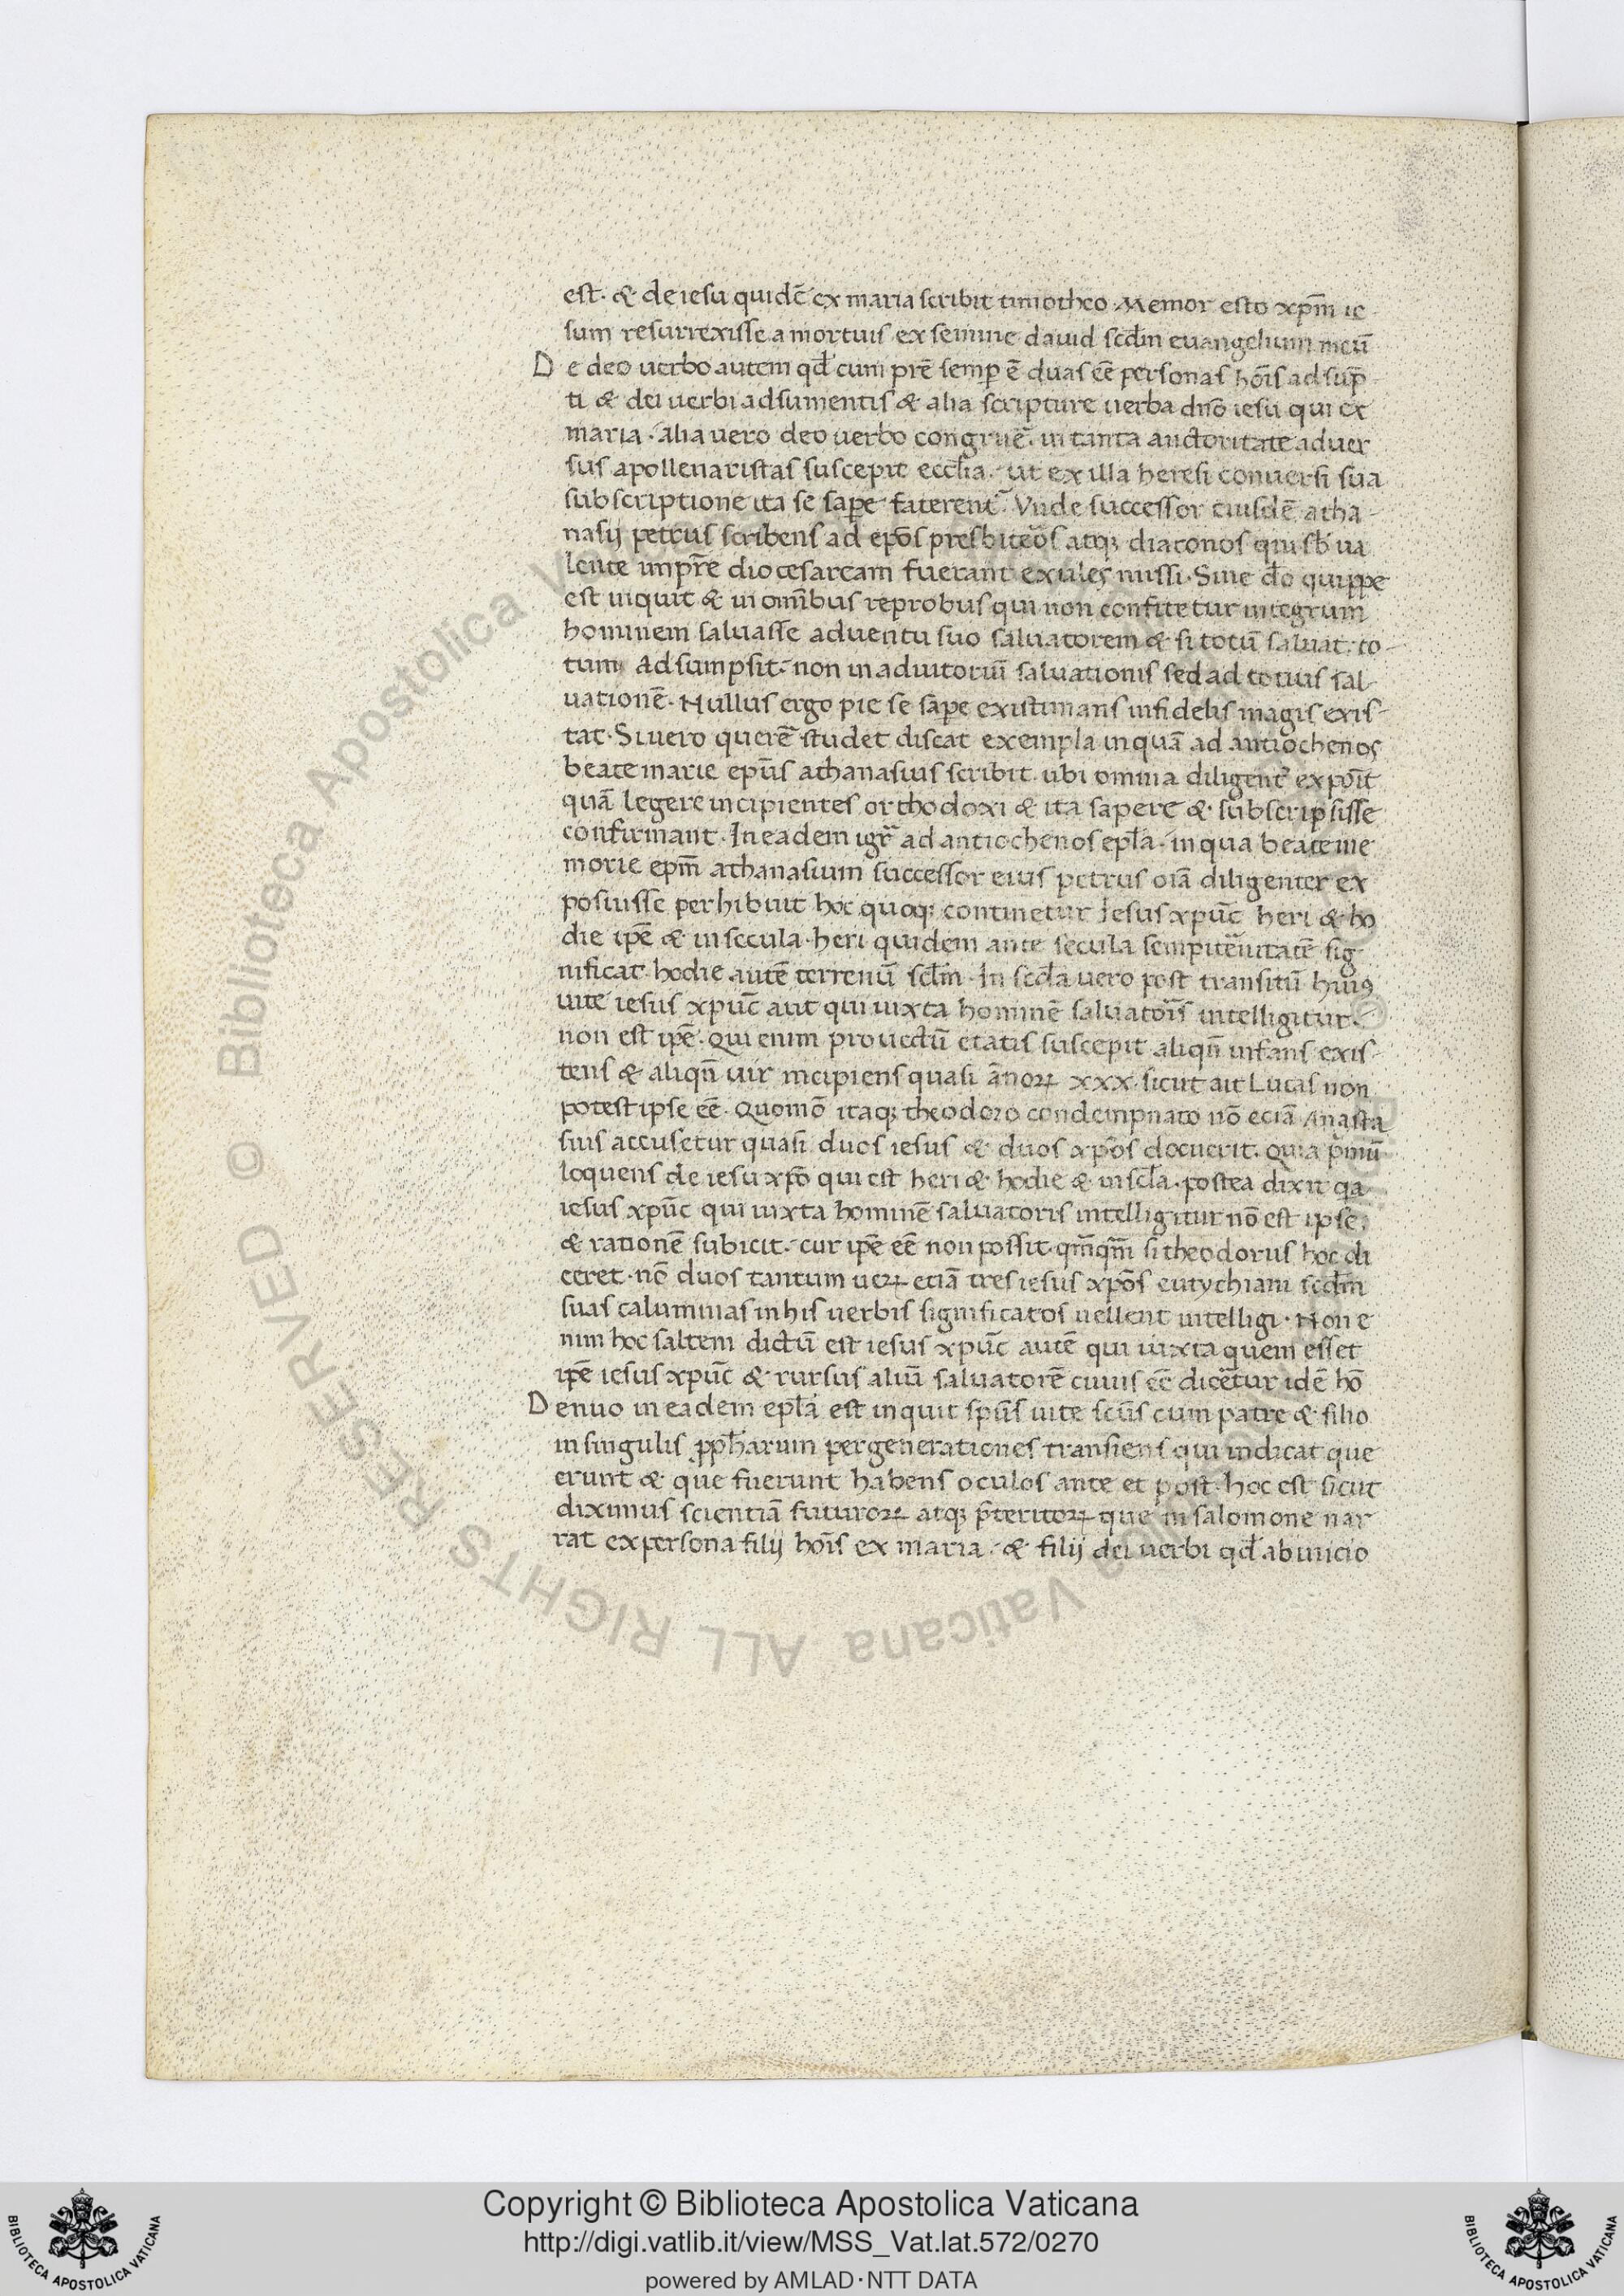 est. & de iesu quidē ex maria scribit timotheo. Memor esto xp̄m ie-
sum resurrexisse a mortuis ex semine dauid scd̄m euangelium meū
De deo uerbo autem qd̄ cum pr̄e semp̄ ē duas eē personas hoīs adsup̄-
ti & dei uerbi adsumentis & alia scripture uerba dn̄o iesu qui ex
maria. alia uero deo uerbo congruē. in tanta auctoritate aduer
sus apollenaristas suscepit eccl̄ia. ut ex illa heresi conuersi sua
subscriptione ita se sap̄e faterent᷑. Vnde successor eiusdē atha-
nasij petrus scribens ad ep̄os presbiteōs atq; diaconos qui sb̄ ua
lente imp̄re diocesaream fuerant exules missi. Sine dō quippe
est inquit & in om̄ibus reprobus qui non confitetur integrum
hominem saluasse aduentu suo saluatorem & si totū saluat. to-
tum Adsumpsit. non in adiutoriū saluationis sed ad totius sal-
uationē. Nullus ergo pie se sap̄e existimans infidelis magis exis-
tat. Si uero querē studet discat exempla in quā ad antiochenos
beate marie ep̄us athanasius scribit. ubi omnia diligent᷑ expoīt
quā legere incipientes orthodoxi & ita sapere & subscripsisse
confirmant. In eadem igr̄ ad antiochenos epl̄a. in qua beate me
morie ep̄m athanasium successor eius petrus oīa diligenter ex
posuisse perhibuit hoc quoq; continetur Iesus xpūc heri & ho
die ip̄e & in secula. heri quidem ante secula sempiteūitatē sig
nificat. hodie autē terrenū scl̄m. In scl̄a uero post transitū huiꝰ
uite iesus xpūc aut qui iuxta hominē saluatoīs intelligitur.
non est ip̄e. Qui enim prouectū etatis suscepit aliqn̄ infans exis-
tens & aliqn̄ uir incipiens quasi ānoꝝ xxx. sicut ait Lucas non
potest ipse eē. Quomō itaq; theodoro condempnato nō eciā Anasta
sius accusetur quasi duos iesus & duos xp̄os docuerit. Quia pͥmū
loquens de iesu xp̄o qui est heri & hodie & in scl̄a. postea dixit qa
iesus xpūc qui iuxta hominē saluatoris intelligitur nō est ipse.
& rationē subicit. cur ip̄e eē non possit. qm̄qm̄ si theodorus hoc di
ceret. nō duos tantum ueꝝ etiā tres iesus xp̄os eutychiani scd̄m
suas calumnias in his uerbis significatos uellent intelligi. Non e
nim hoc saltem dictū est iesus xpūc autē qui iuxta quem esset
ip̄e iesus xpūc & rursus aliū saluatorē cuius eē dicetur idē hō
Denuo in eadem epl̄a est inquit sp̄us uite scūs cum patre & filio
in singulis ꝓph̄arum per generationes transiens qui indicat que
erunt & que fuerunt habens oculos ante et post. hoc est sicut
diximus scientiā futuroꝝ atq; p̄teritoꝝ que in salomone nar
rat ex persona filij hoīs ex maria. & filij dei uerbi qd̄ ab inicio
© Biblioteca Apostolica Vaticana ALL RIGHTS RESERVED
Copyright © Biblioteca Apostolica Vaticana
http://digi.vatlib.it/view/MSS_Vat.lat.572/0270
powered by AMLAD·NTT DATA
BIBLIOTECA APOSTOLICA VATICANA
BIBLIOTECA APOSTOLICA VATICANA